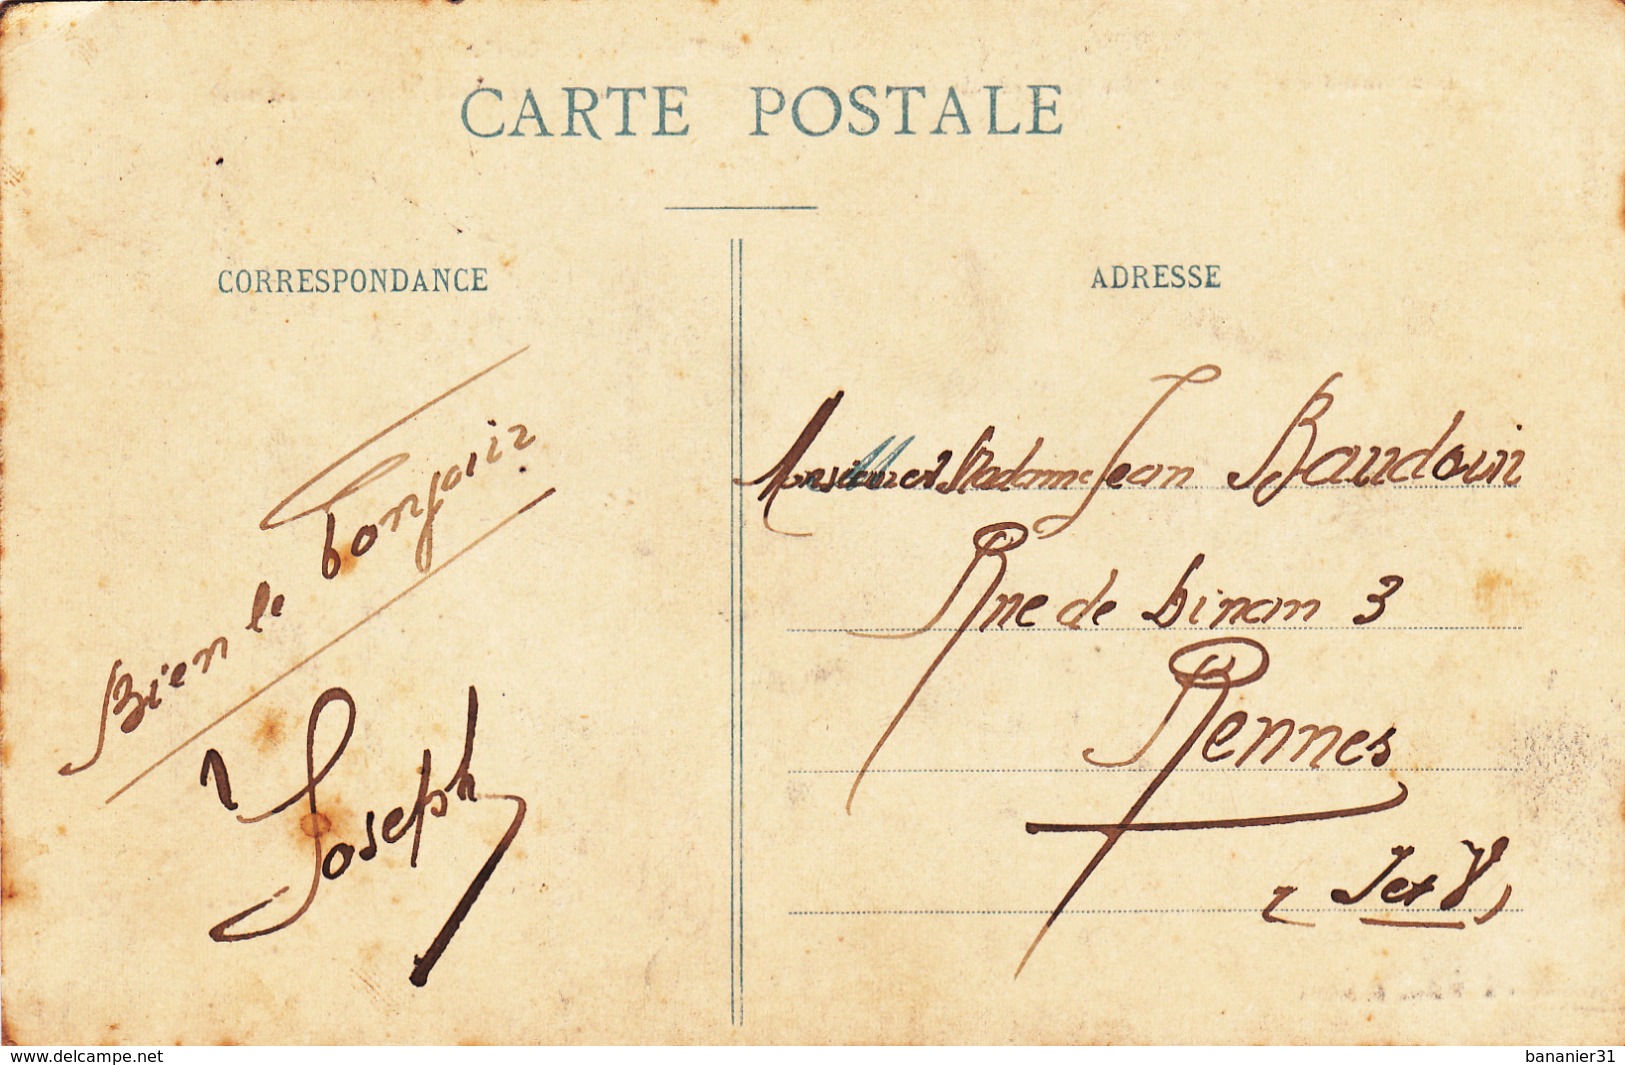 CARTE POSTALE
CORRESPONDANCE
Bien le bonjour
Joseph
ADRESSE
Monsieur et Madame Jean Baudouin
Rue de Dinan 3
Rennes
(I et V)
www.delcampe.net
bananier31